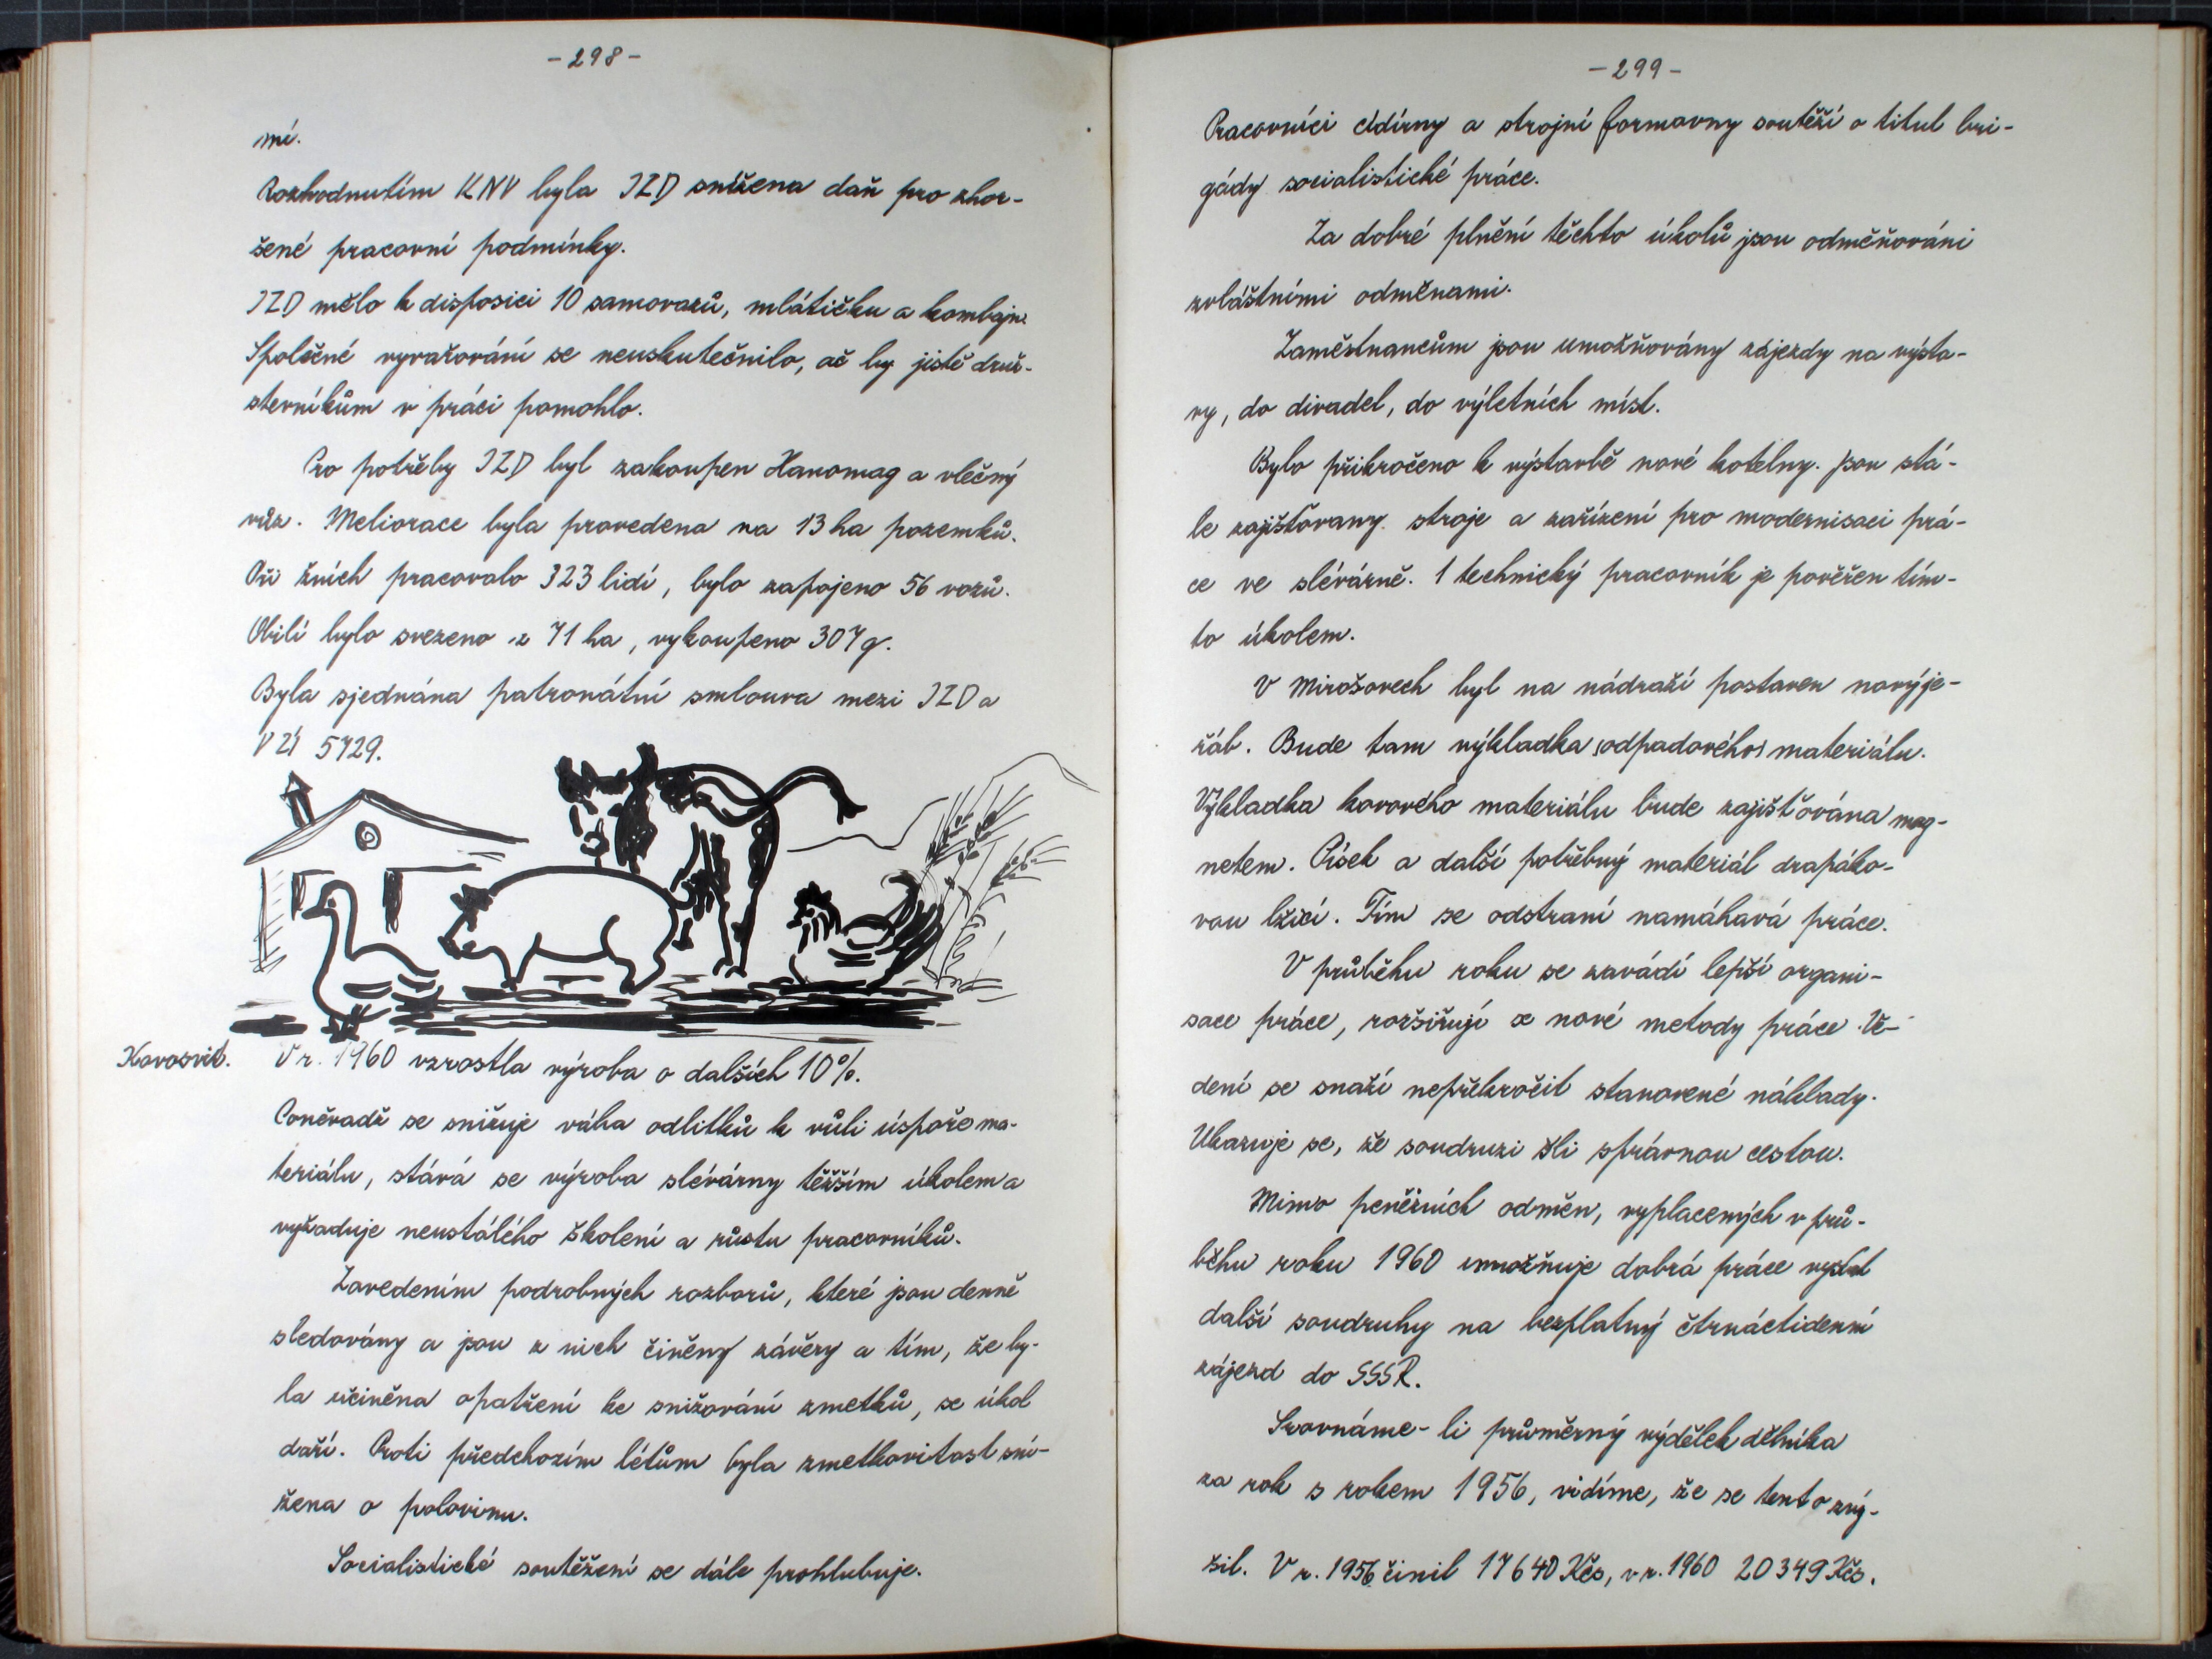 -298-
mi.
Rozhodnutím KNV byla JZD snížena daň pro zhor-
šené pracovní podmínky.
JZD mělo k disposici 10 samovazů, mlátičku a kombajn.
Společné vyvařování se neuskutečnilo, ač by jistě druž-
stevníkům v práci pomohlo.
Pro potřeby JZD byl zakoupen Hanomag a vlečný
vůz. Meliorace byla provedena na 13 ha pozemků.
Při žních pracovalo 323 lidí, bylo zapojeno 56 vozů.
Obilí bylo svezeno z 71 ha, vykoupeno 307 q.
Byla sjednána patronátní smlouva mezi JZD a
VÚ 5729.
Kovosvit. V r. 1960 vzrostla výroba o dalších 10%.
Poněvadž se snižuje váha odlitků k vůli úspoře ma-
teriálu, stává se výroba slévárny těžším úkolem a
vyžaduje neustálého školení a růstu pracovníků.
Zavedením podrobných rozborů, které jsou denně
sledovány a jsou z nich činěny závěry a tím, že by-
la učiněna opatření ke snižování zmetků, se úkol
daří. Proti předchozím létům byla zmetkovitost sní-
žena o polovinu.
Socialistické soutěžení se dále prohlubuje.
-299-
Pracovníci cídírny a strojní formovny soutěží o titul bri-
gády socialistické práce.
Za dobré plnění těchto úkolů jsou odměňováni
zvláštními odměnami.
Zaměstnancům jsou umožňovány zájezdy na výsta-
vy, do divadel, do výletních míst.
Bylo přikročeno k výstavbě nové kotelny. Jsou stá-
le zajišťovany stroje a zařízení pro modernisaci prá-
ce ve slévárně. 1 technický pracovník je pověřen tím-
to úkolem.
V Mirošovech byl na nádraží postaven nový je-
řáb. Bude tam výkladka odpadového materiálu.
Výkladka kovového materiálu bude zajišťována mag-
netem. Písek a další potřebný materiál drapáko-
vou lžicí. Tím se odstraní namáhavá práce.
V průběhu roku se zavádí lepší organi-
sace práce, rozšiřují se nové metody práce. Ve-
dení se snaží nepřekročit stanovené náklady.
Ukazuje se, že soudruzi šli správnou cestou.
Mimo peněžních odměn, vyplacených v prů-
běhu roku 1960 umožňuje dobrá práce vyslat
další soudruhy na bezplatný čtrnáctidenní
zájezd do SSSR.
Srovnáme-li průměrný výdělek dělníka
za rok s rokem 1956, vidíme, že se tento zvý-
šil. V r. 1956 činil 17640 Kčs, v r. 1960 20349 Kčs.